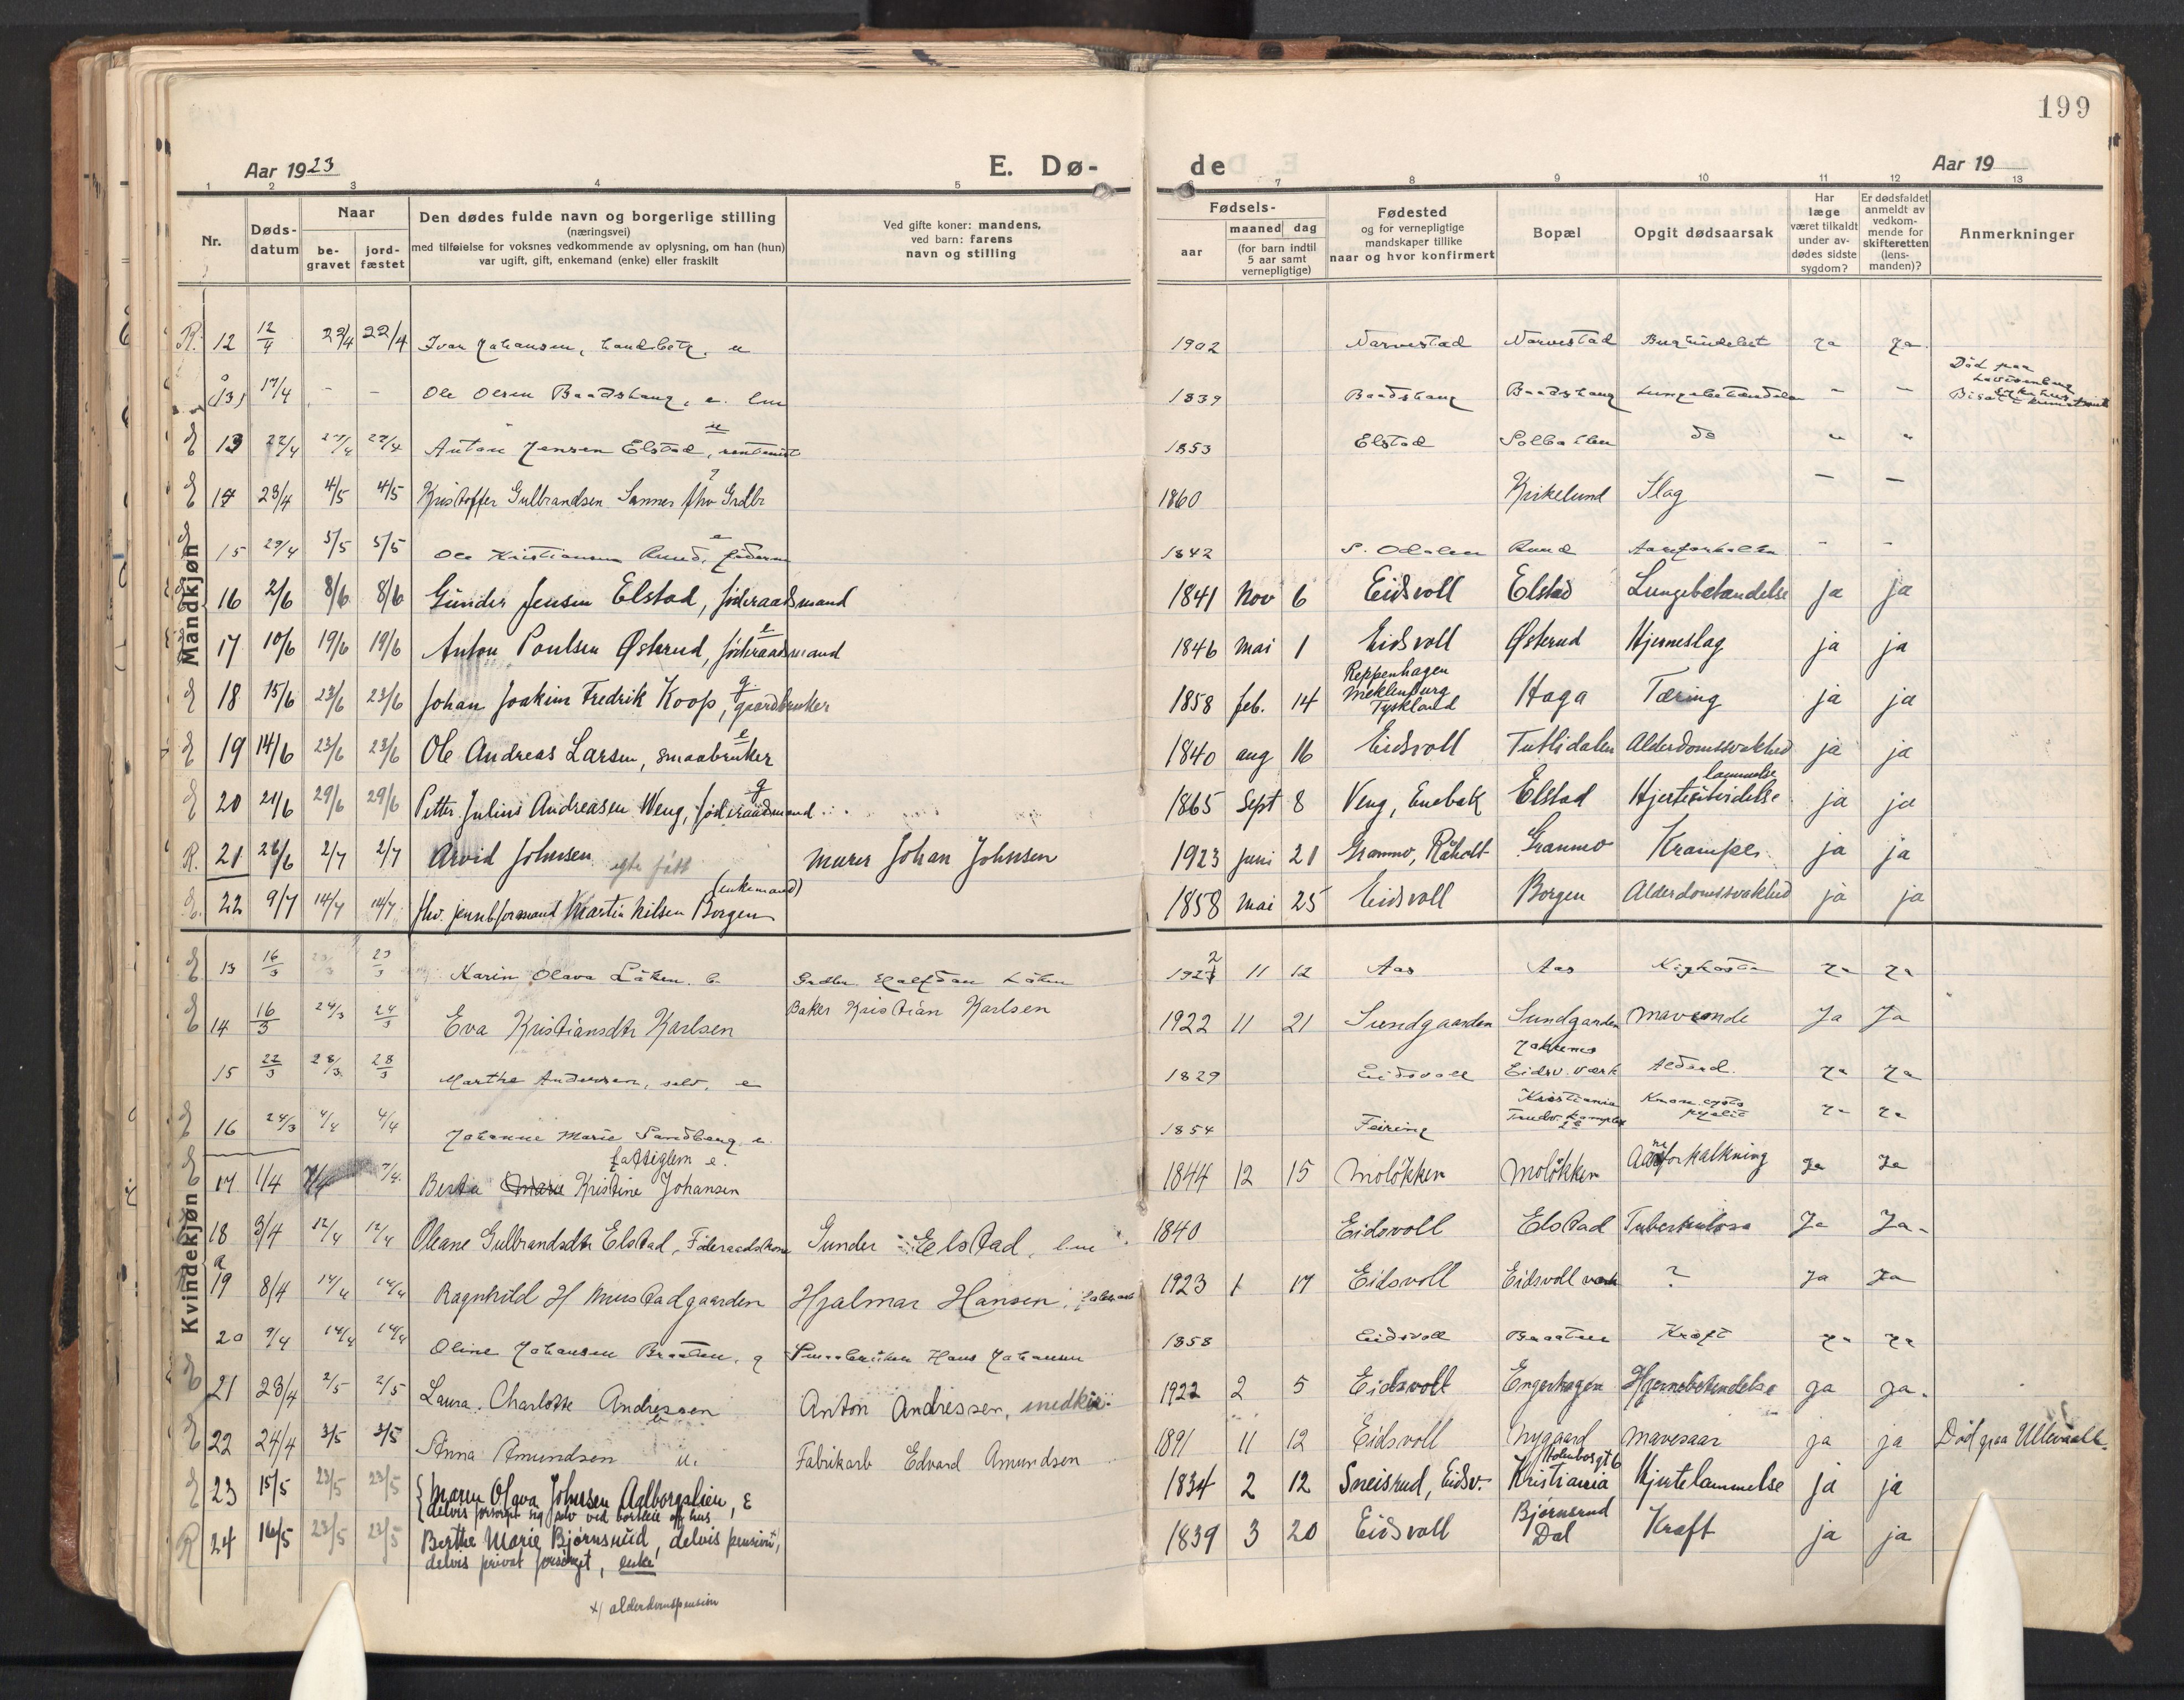 199
Aar 1923
E. Dø-
de
Aar 19
1 2 3 4 5 6 7 8 9 10 11 12 13
Nr.
Døds-
datum
Naar
be-
gravet
jord-
fæstet
Den dødes fulde navn og borgerlige stilling
(næringsvei)
med tilføielse for voksnes vedkommende av oplysning, om han (hun)
var ugift, gift, enkemand (enke) eller fraskilt
Ved gifte koner: mandens,
ved barn: farens
navn og stilling
Fødsels-
aar
maaned dag
(for barn indtil
5 aar samt
vernepligtige)
Fødested
og for vernepligtige
mandskaper tillike
naar og hvor konfirmert
Bopæl
Opgit dødsaarsak
Har
læge
været tilkaldt
under av-
dødes sidste
sygdom?
Er dødsfaldet
anmeldt av
vedkom-
mende for
skifteretten
(lens-
manden)?
Anmerkninger
Mandkjøn
R. 12 12/4 22/4 22/4 Ivar Johansen, u 1902 Narvestad Narvestad ja ja.
(13) 17/4 - - Ole Olsen Baadshaug, 1839 Baadshaug Baadshaug Lungebetændelse - - Död paa
E 13 22/4 Anton Jensen Elstad, u 1853 Elstad Solbakken do " "
E 14 23/4 4/5 4/5 Kristoffer Gulbrandsen Sannes fhv Grdbr ? 1860 Kirkelund Slag — —
15 29/4 5/5 5/5 Ole Kristiansen Ruud, e 1842 S. Odalen Ruud Aareforkalkn - -
16 2/6 8/6 8/6 Gunder Jensen Elstad, føderaadsmand 1841 Nov 6 Eidsvoll Elstad Lungebetændelse Ja ja
17 10/6 19/6 19/6 Anton Poulsen Østerud, føderaadsmand e 1846 Mai 1 Eidsvoll Østerud Hjerneslag ja ja
E 18 15/6 23/6 23/6 Johan Joakim Fredrik Koop, gaardbruker g. 1858 feb. 14 Reppenhagen Meklenburg Tyskland Haga Tæring ja ja
E 19 14/6 23/6 23/6 Ole Andreas Larsen, smaabruker e 1840 aug 16 Eidsvoll Tutlidalen Alderdomssvakhed ja ja
E 20 21/6 29/6 29/6 Petter Julius Andreasen Weng, føderaadsmand g 1865 Sept 8 Veng, Enebak Elstad lammelse ja ja
R. 21 26/6 2/7 2/7 Arvid Johnsen Murer Johan Johnsen 1923 juni 21 Granmo, Råholt Granmo Kramper ja ja
22 9/7 14/7 14/7 fhv. jernb.formand Martin Nilsen Borgen (enkemand) 1858 Mai 25 Eidsvoll Borgen Alderdomssvakhed ja ja
Kvindekjøn
E 13 16/3 23/3 Karin Olava Löken. b. Grdbr. Halfdan Löken 1922 11 12 Aas Aas Kighoste ja ja
E 14 16/3 24/3 24/3 Eva Kristiansdtr Karlsen Baker Kristian Karlsen 1922 11 21 Sundgaarden Sundgarden Maveonde Ja Ja
15 22/3 28/3 28/3 Marthe Andersen, selv. e 1829 Eidsvoll Eidsv. værk Alderd. ja ja
E 16 24/3 4/4 4/4 Johanne Marie Sandberg 1854 Feiring Kristiania ja ja
E 17 1/4 7/4 7/4. Berta Marie Kristine Johansen fattiglem e. 1844 12 15 Molökken Molökken Aareforkalkning Ja Ja
18 3/4 12/4 12/4 Oleane Gulbrandsdtr Elstad, Føderaadskone Gunder Elstad, 1840 Eidsvoll Elstad Tuberkulose Ja Ja-
19 8/4 14/4 14/4 Ragnhild H Mustadgaarden Hjalmar Hansen, 1923 1 17 Eidsvoll Eidsvoll værk ? Ja Ja
20 9/4 14/4 14/4 Oline Johansen Braaten. g Smaabruker Hans Johansen 1858 Eidsvoll Braaten Kræft ja ja
E 21 23/4 2/5 2/5 Laura Charlotte Andressen Anton Andressen, 1922 2 5 Eidsvoll Engerhagen Hjernebetendelse ja ja.
E 22 24/4 3/5 3/5 Anna Amundsen u. Fabrikarb Edvard Amundsen 1891 11 12 Eidsvoll Nygaard Mavesaar ja ja Död paa Ullevaal
E 23 15/5 23/5 23/5 Maren Olava Johnsen Aalborgslien, E 1834 2 12 Sneisrud, Eidsv. Holmborgt 6 Kristiania Hjertelammelse ja ja
delvis forsørget sig selv ved
R 24 16/5 23/5 23/5 Berthe Marie Bjørnsrud, delvis pension x), 1839 3 20 Eidsvoll Bjørnsrud Dal Kræft ja ja
delvis privat forsørget, enke
x) alderdomspension